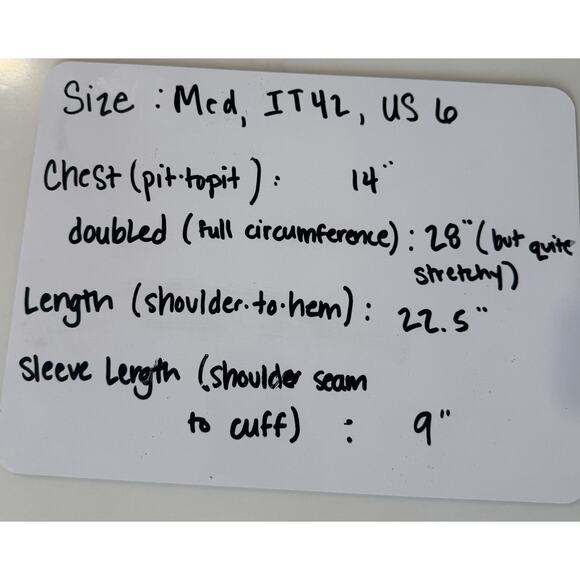 Size : Med, IT42, US 6
Chest (pit·to pit) : 14"
doubled (full circumference) : 28" (but quite
stretchy)
Length (shoulder·to·hem) : 22.5"
Sleeve Length (shoulder seam
to cuff) : 9"